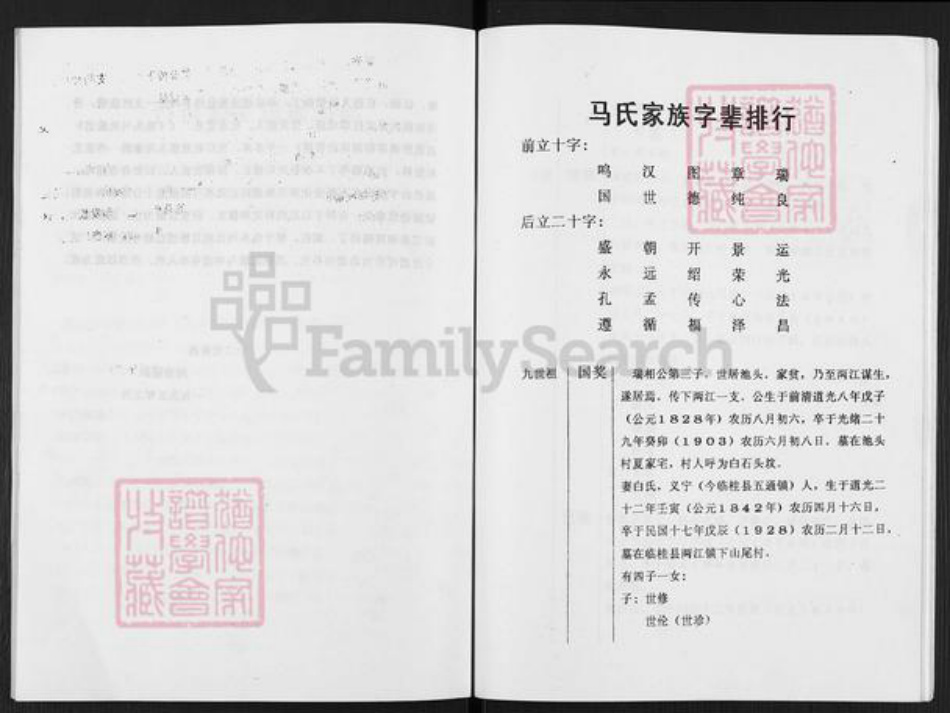 马氏家族字辈排行
前立十字：
鸣 汉 图 章 瑞
国 世 德 纯 良
后立二十字：
盛 朝 开 景 运
永 远 绍 荣 光
孔 孟 传 心 法
遵 循 福 泽 昌
FamilySearch
九世祖 国奖 瑞相公第三子。世居池头。家贫，乃至两江谋生，
遂居焉。传下两江一支。公生于前清道光八年戊子
（公元1828年）农历八月初六，卒于光绪二十
九年癸卯（1903）农历六月初八日。墓在池头
村夏家宅，村人呼为白石头坟。
妻白氏，义宁（今临桂县五通镇）人，生于道光二
十二年壬寅（公元1842年）农历四月十六日，
卒于民国十七年戊辰（1928）农历二月十二日，
墓在临桂县两江镇下山尾村。
有四子一女：
子：世修
世伦（世珍）